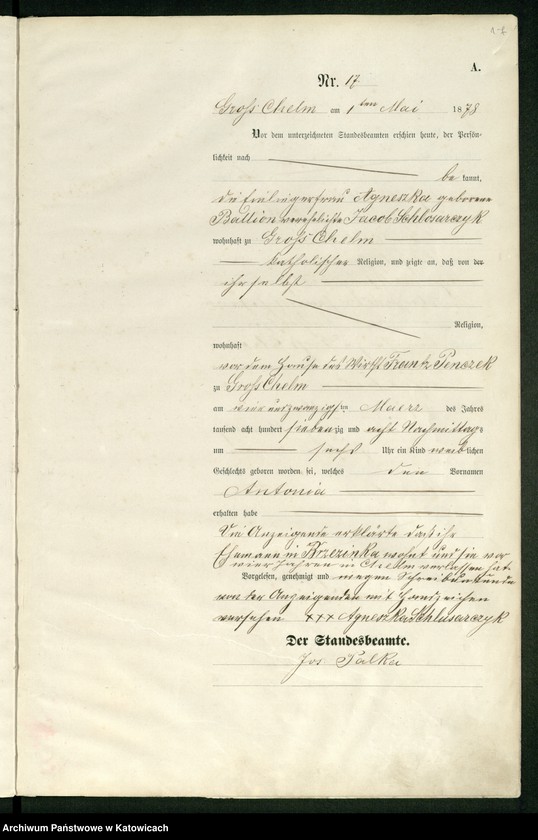 A.
Nr. 17
Gross Chelm am 1ten Mai 1878
Vor dem unterzeichneten Standesbeamten erschien heute, der Persön-
lichkeit nach
be kannt,
die Einliegerfrau Agneszka geborene
Ballion verehelichte Jacob Schlosarczyk
wohnhaft zu Gross Chelm
katholischer Religion, und zeigte an, daß von der
ihr selbst
Religion,
wohnhaft
vor dem Hause des Wirths Frantz Penczek
zu Gross Chelm
am vier und zwanzigsten Maerz des Jahres
tausend acht hundert siebenzig und acht Nachmittags
um sechs Uhr ein Kind weiblichen
Geschlechts geboren worden sei, welches den Vornamen
Antonia
erhalten habe
Die Anzeigende erklärte daß ihr
Ehemann in Brzezinka wohnt und sie vor
vier Jahren in Chelm verlassen hat
Vorgelesen, genehmigt und wegen Schreibunkunde
von der Anzeigenden mit Handzeichen
versehen xxx Agneszka Schlusarczyk
Der Standesbeamte.
Jos Palka
Archiwum Państwowe w Katowicach